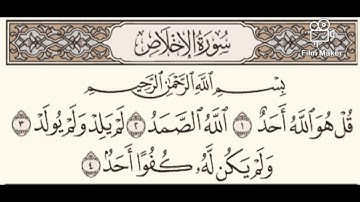 سُورَةُ الإِخْلَاصِ
Film Maker
بِسْمِ اللَّهِ الرَّحْمَٰنِ الرَّحِيمِ
قُلْ هُوَ اللَّهُ أَحَدٌ ١ اللَّهُ الصَّمَدُ ٢ لَمْ يَلِدْ وَلَمْ يُولَدْ ٣
وَلَمْ يَكُن لَّهُۥ كُفُوًا أَحَدٌۢ ٤